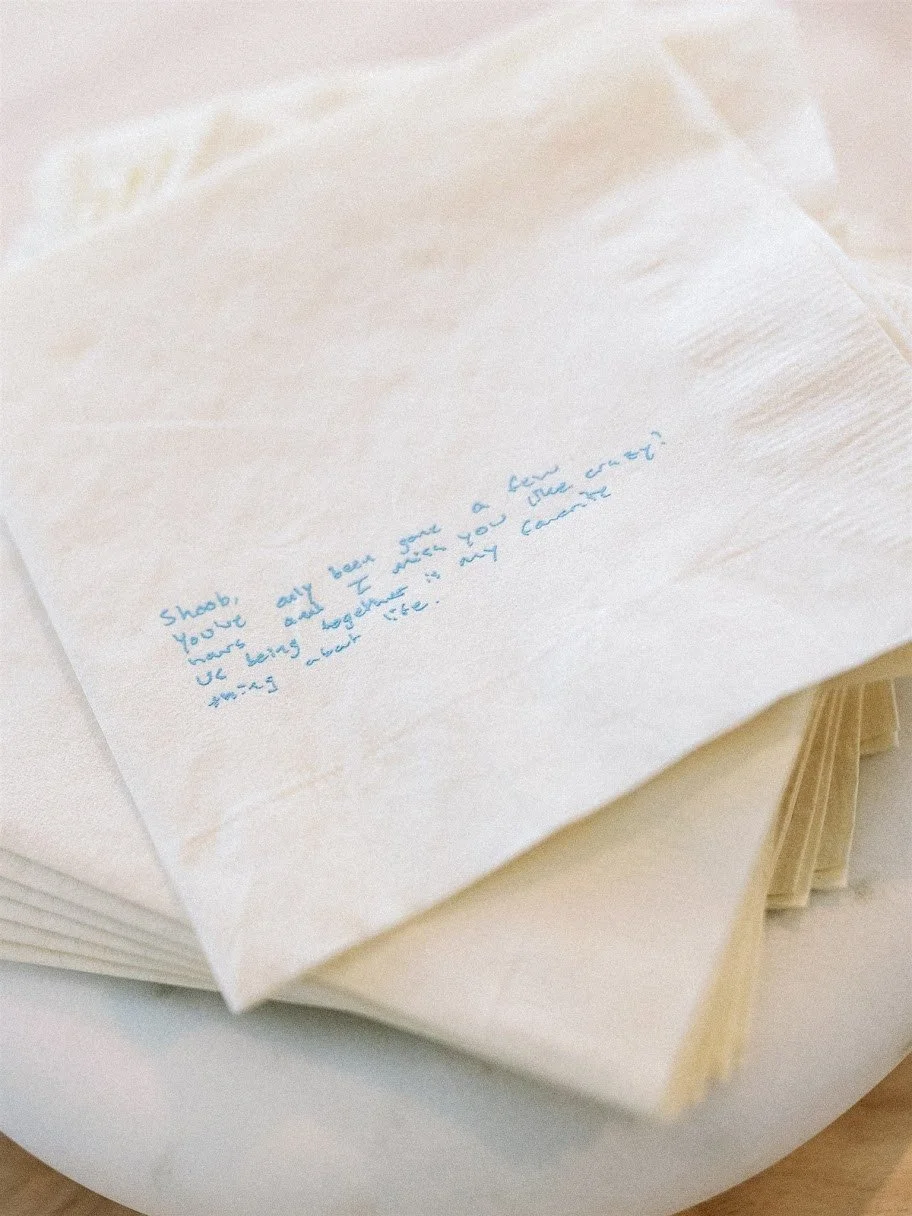 Shoob,
You've only been gone a few
hours and I miss you like crazy!
us being together is my favorite
thing about life.